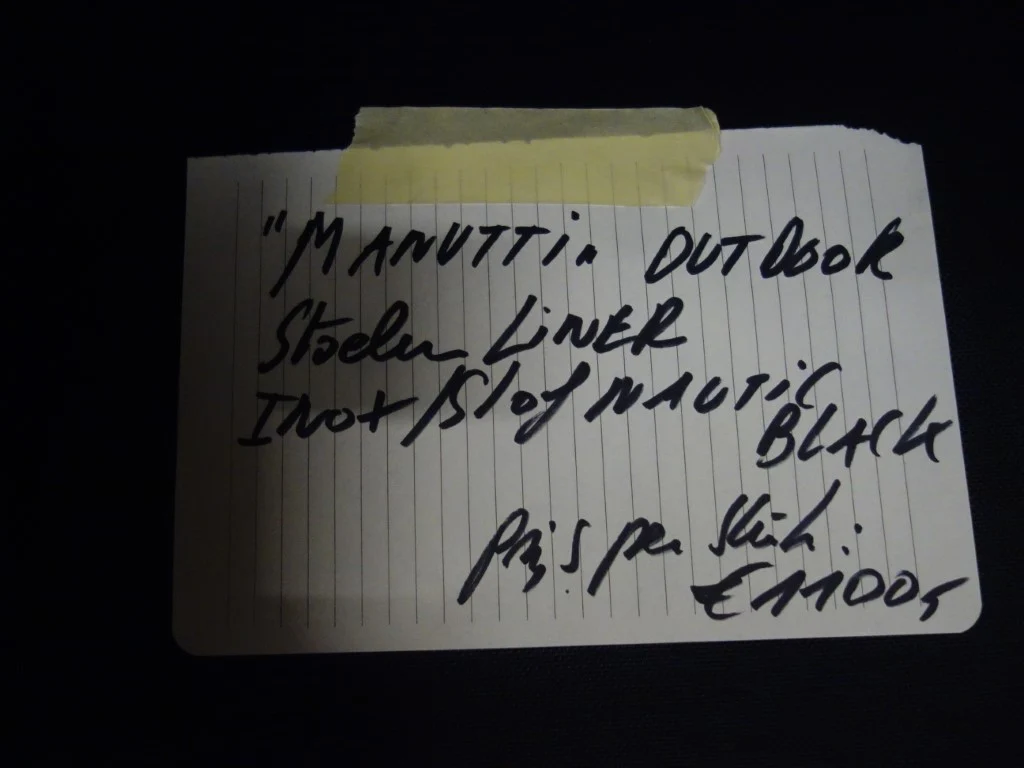 "MANUTTi" OUTDOOR
Stoelen LiNER
INOX/Stof NAUTiC
BLACK
prijs per stuk:
€1100,